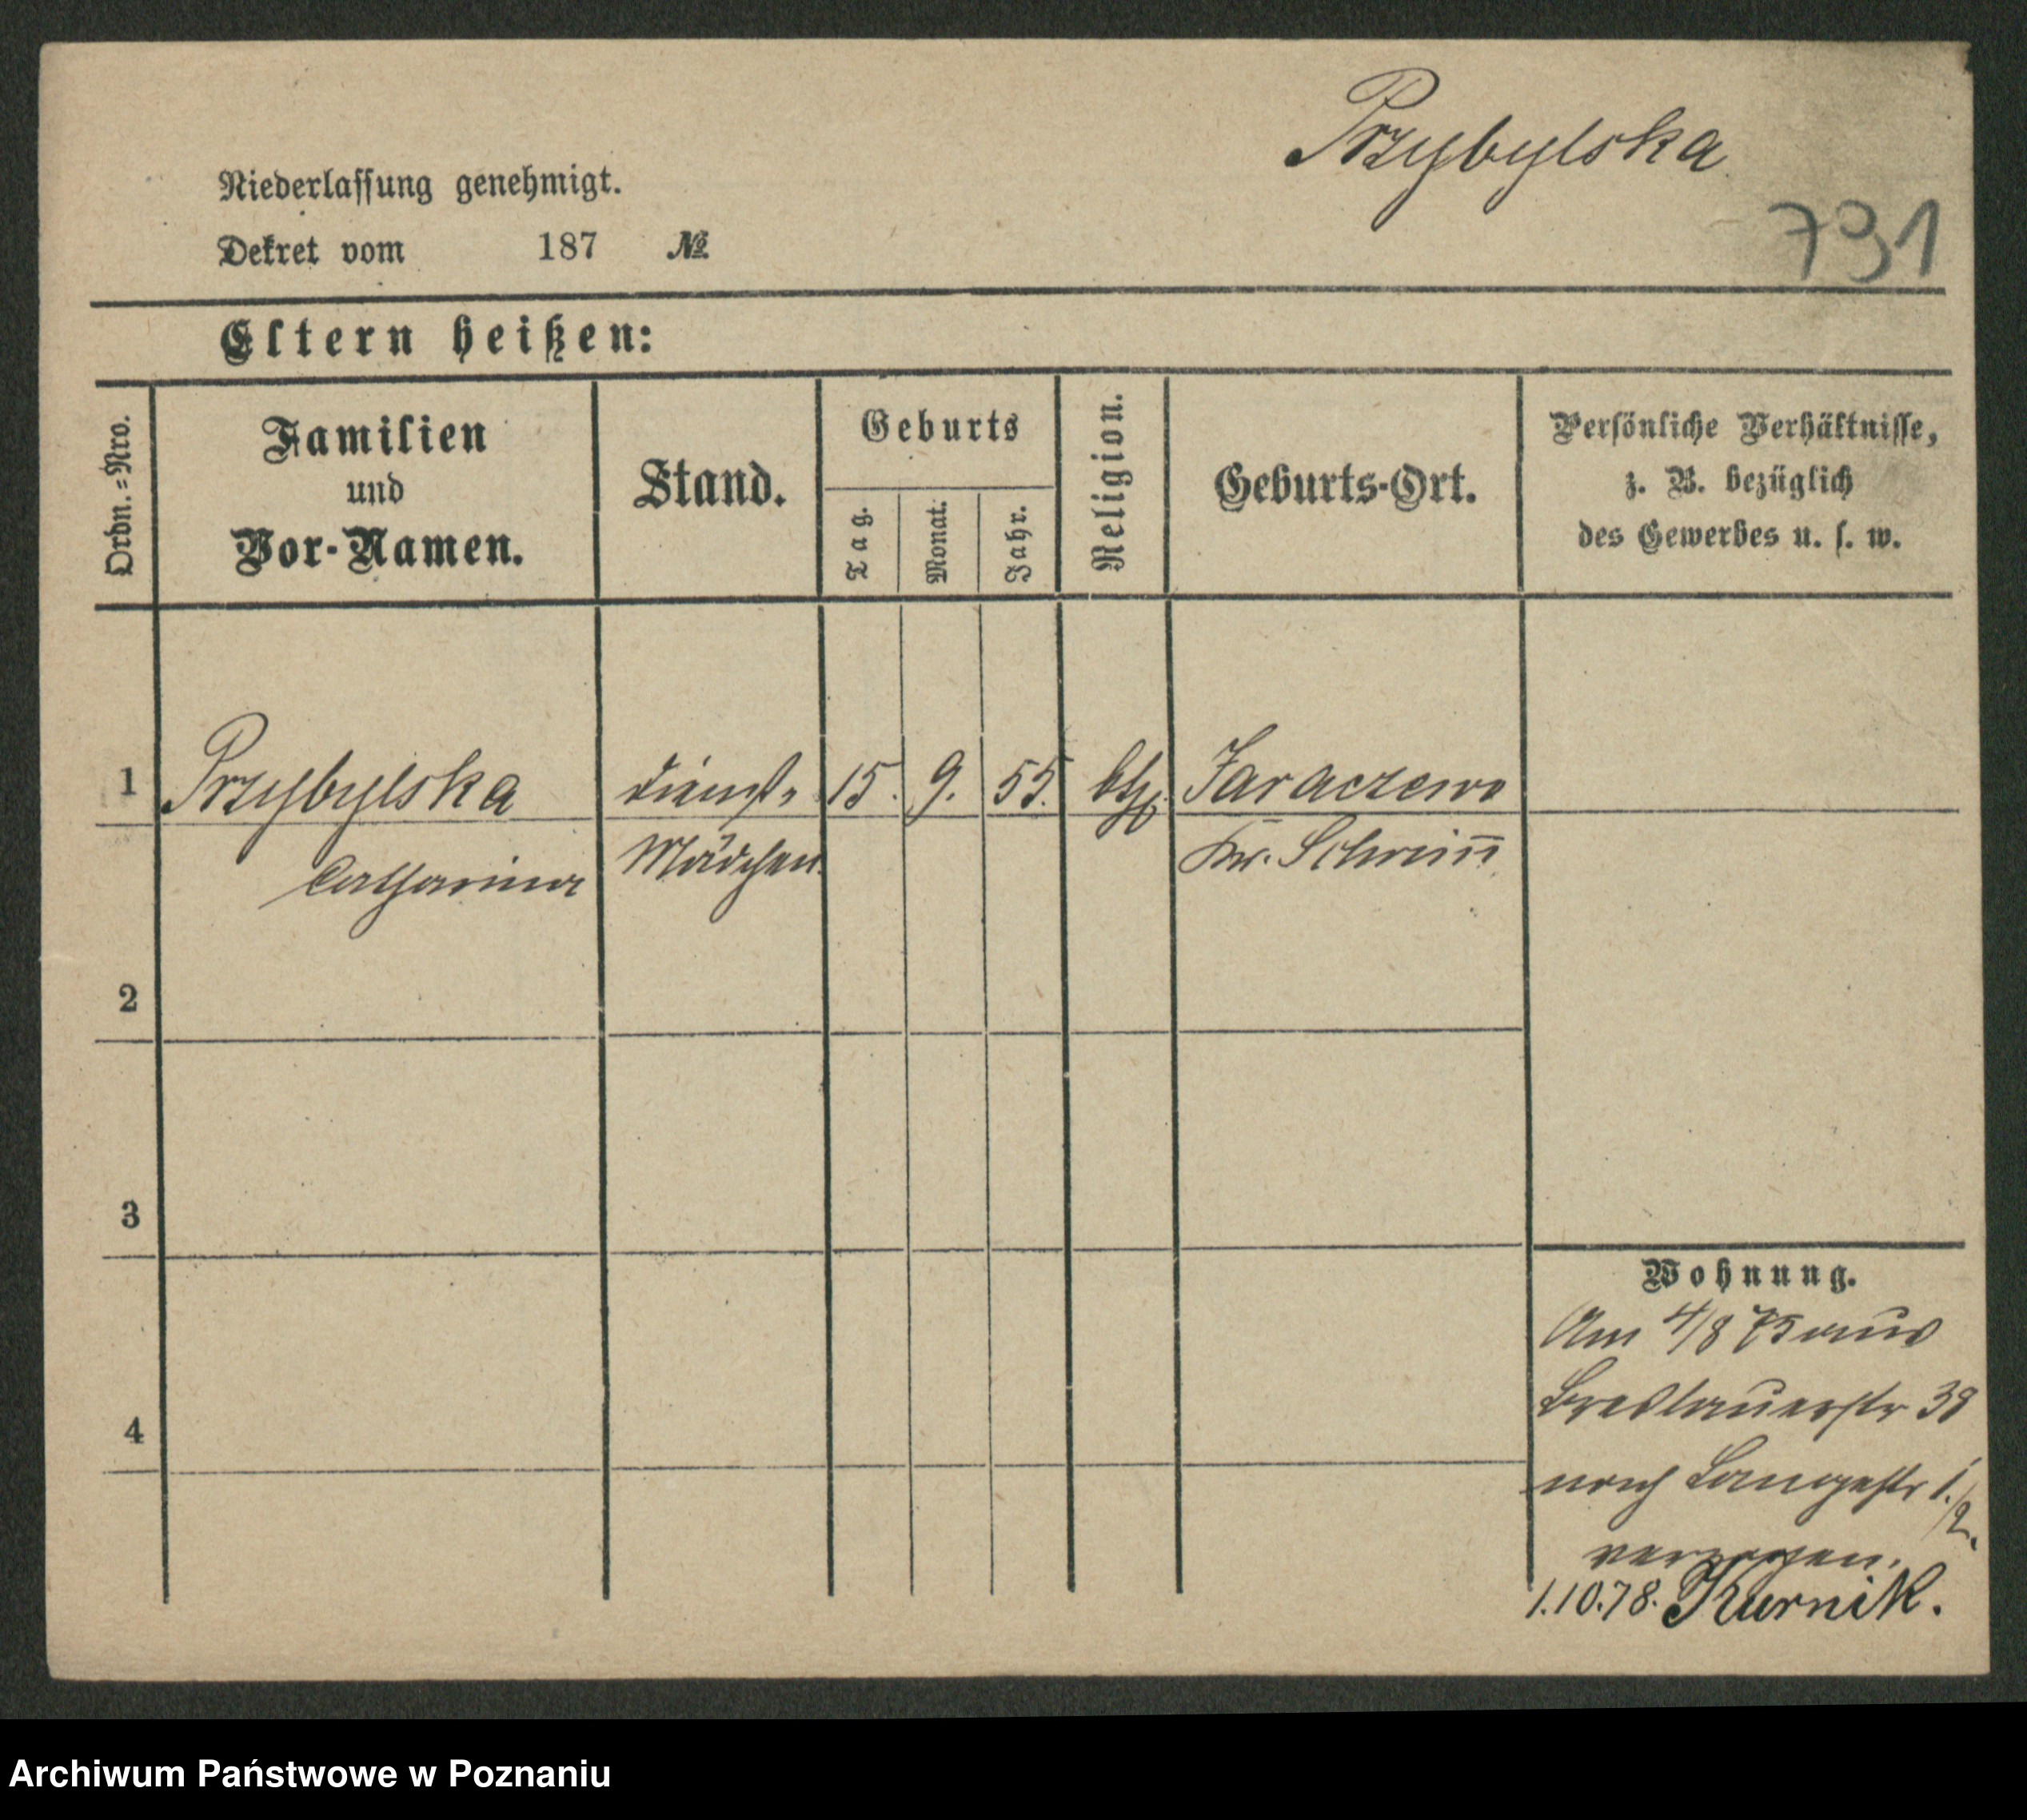 Przybylska
791
Niederlassung genehmigt.
Dekret vom 187 №
Eltern heißen:
Ordn.=Nro.
Familien
und
Vor-Namen.
Stand.
Geburts
Tag.
Monat.
Jahr.
Religion.
Geburts-Ort.
Persönliche Verhältnisse,
z. B. bezüglich
des Gewerbes u. s. w.
1 Przybylska Dienst- 15. 9. 55. kth. Jaraczewo
Catharina Mädchen. Kr. Schrim̄
2
3
4
Wohnung.
Am 4/8 75 aus
Breslauerstr 38
nach Langestr 1./2.
verzogen.
1.10.78. Kurnik.
Archiwum Państwowe w Poznaniu